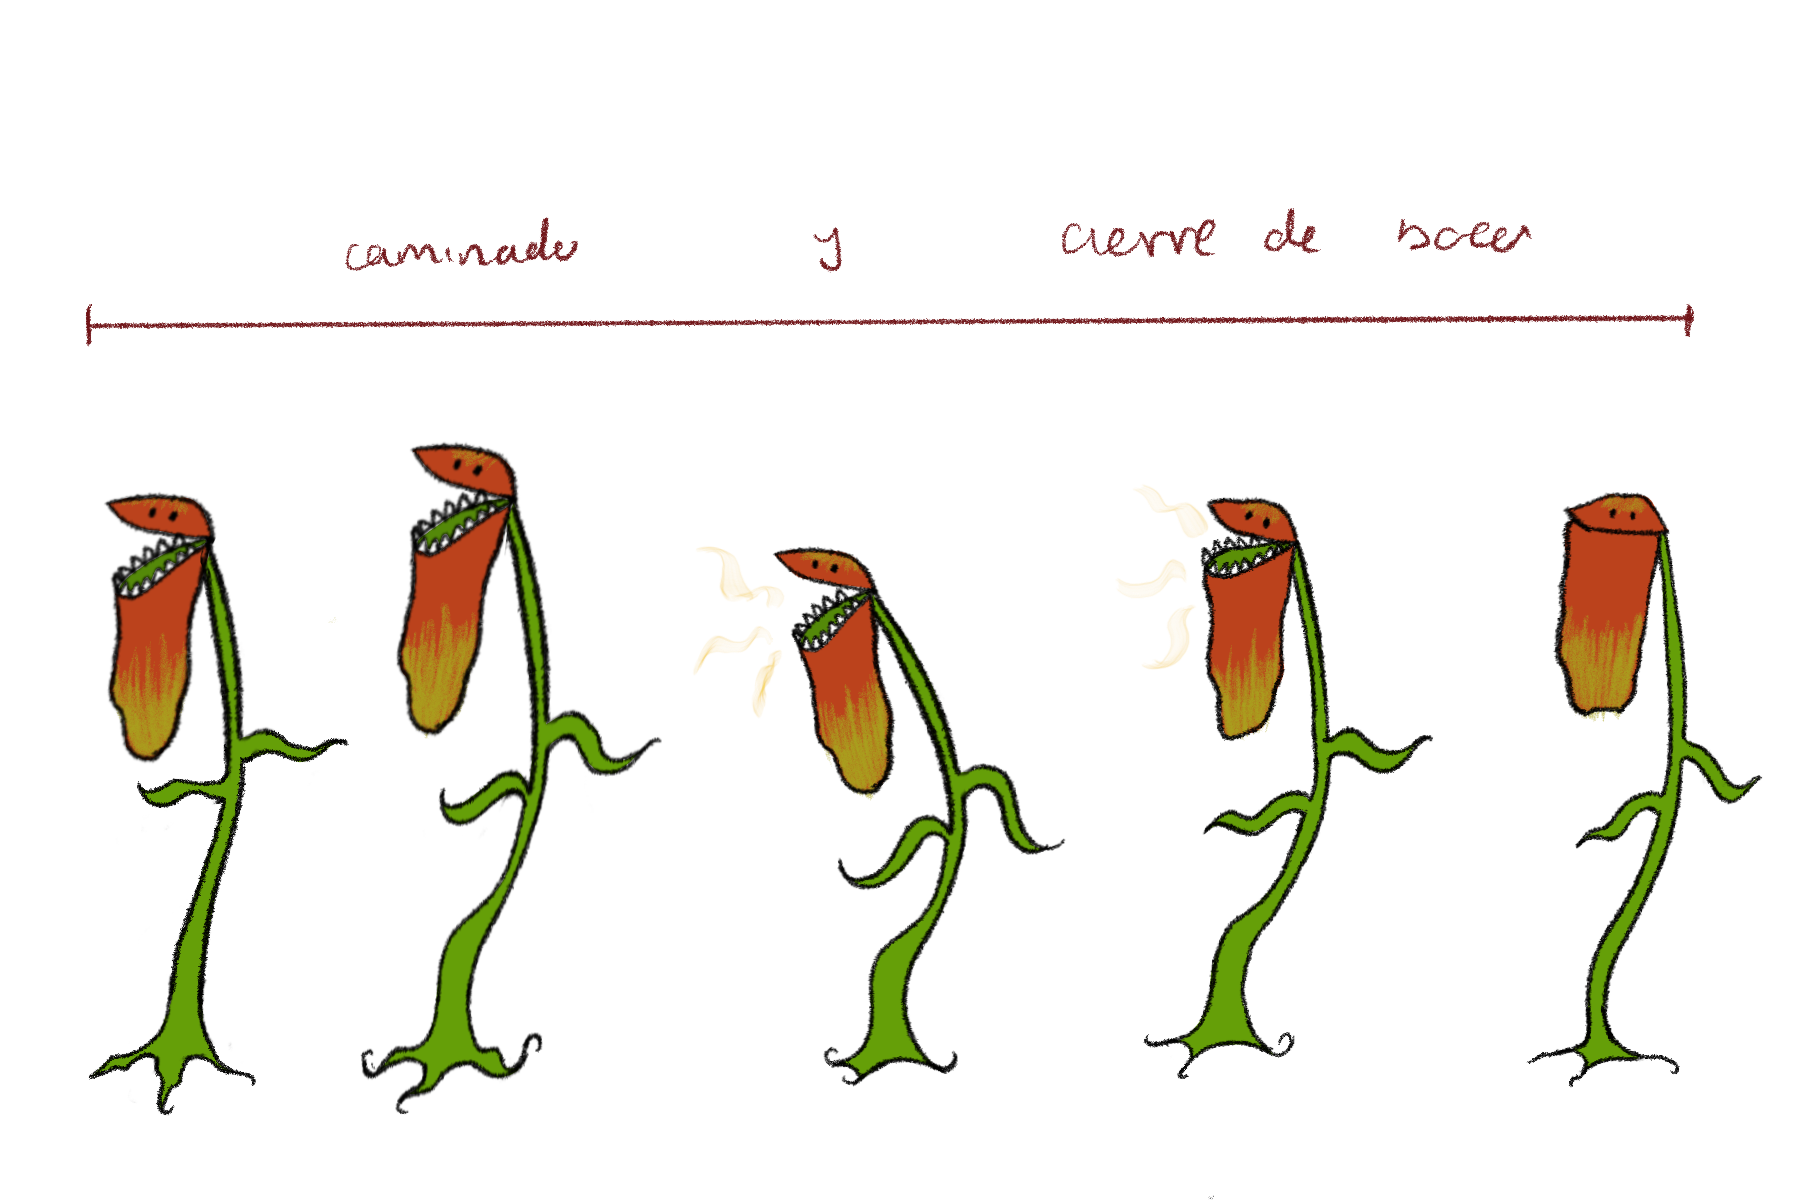 caminado y cierre de boca